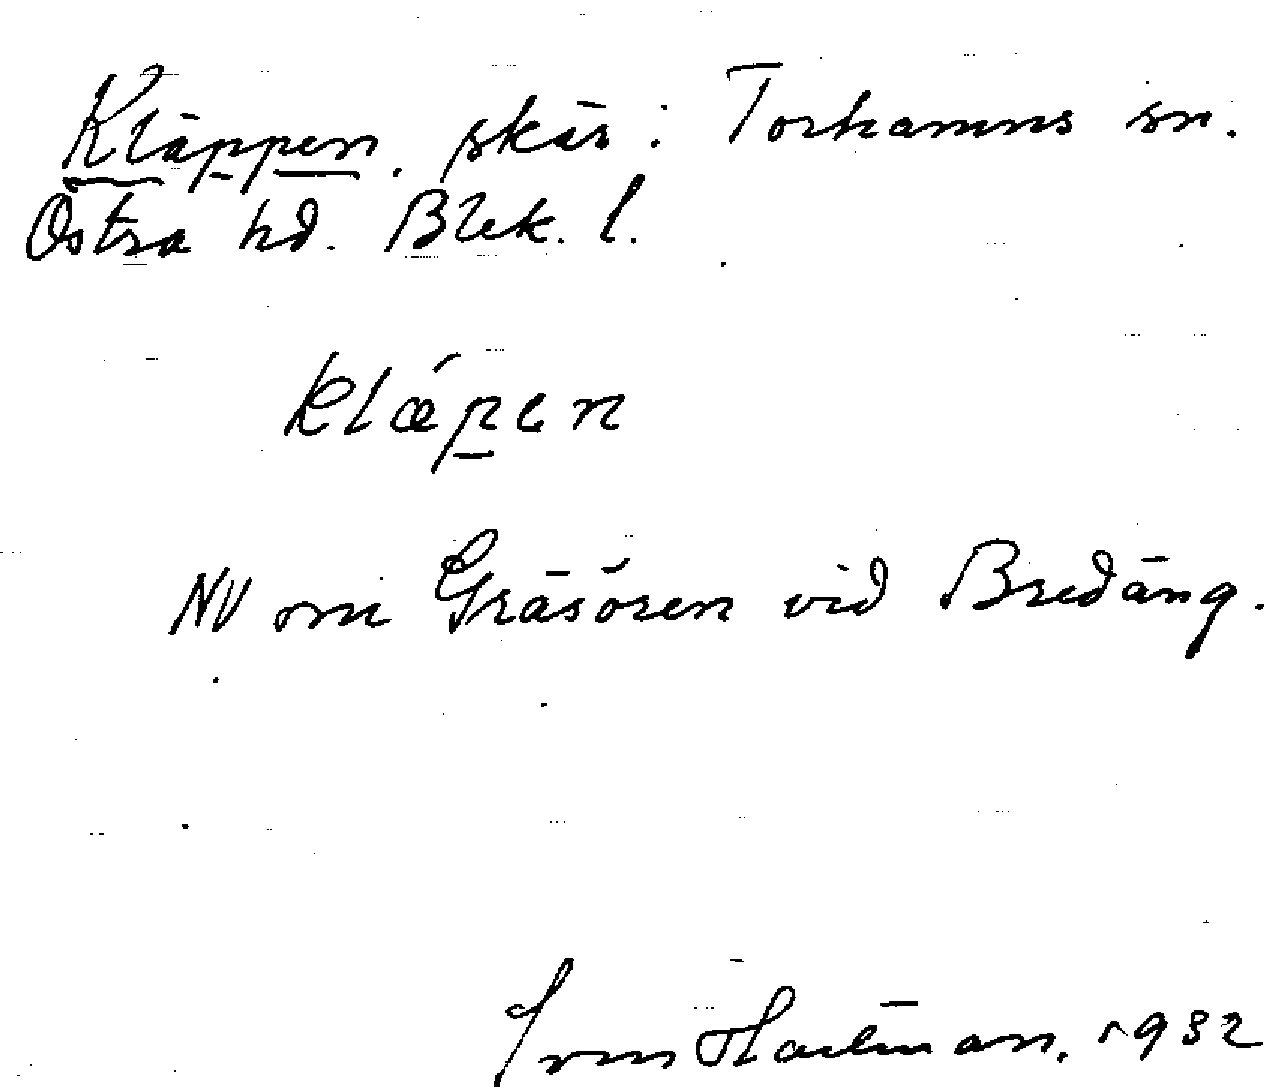 Kläppen. skär i Torhamns sn.
Östra hd. Blek. l.
klǽpen
NV om Gräsören vid Bredäng.
Hartman. 1932